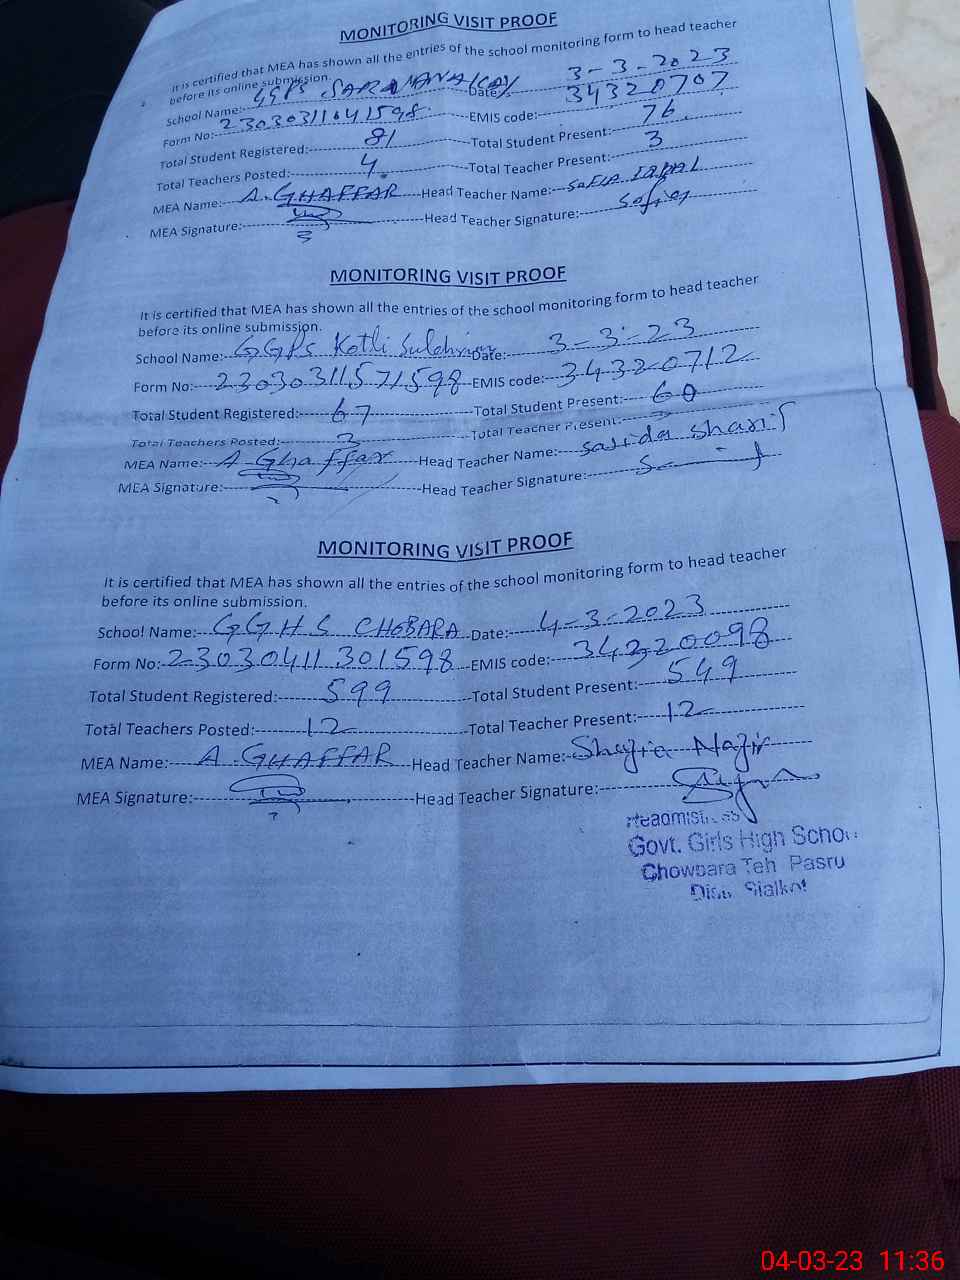 MONITORING VISIT PROOF
It is certified that MEA has shown all the entries of the school monitoring form to head teacher
before its online submission.
School Name: GGPS Date: 3-3-2023
Form No: 23030311041598 EMIS code: 34320707
Total Student Registered: 81 Total Student Present: 76
Total Teachers Posted: 4 Total Teacher Present: 3
MEA Name: A. GHAFFAR Head Teacher Name: SOFIA IQBAL
MEA Signature: Head Teacher Signature: Sofia
MONITORING VISIT PROOF
It is certified that MEA has shown all the entries of the school monitoring form to head teacher
before its online submission.
School Name: GGPS Kotli Date: 3-3-23
Form No: 23030311571598 EMIS code: 34320712
Total Student Registered: 67 Total Student Present: 60
Total Teachers Posted: 3 Total Teacher Present:
MEA Name: A Ghaffar Head Teacher Name: Sharif
MEA Signature: Head Teacher Signature:
MONITORING VISIT PROOF
It is certified that MEA has shown all the entries of the school monitoring form to head teacher
before its online submission.
School Name: GGHS CHOBARA Date: 4-3-2023
Form No: 23030411301598 EMIS code: 34320098
Total Student Registered: 599 Total Student Present: 549
Total Teachers Posted: 12 Total Teacher Present: 12
MEA Name: A. GHAFFAR Head Teacher Name: Shazia Nazir
MEA Signature: Head Teacher Signature:
Headmistress
Govt. Girls High School
Chowbara Teh Pasru
Dist. Sialkot
04-03-23 11:36